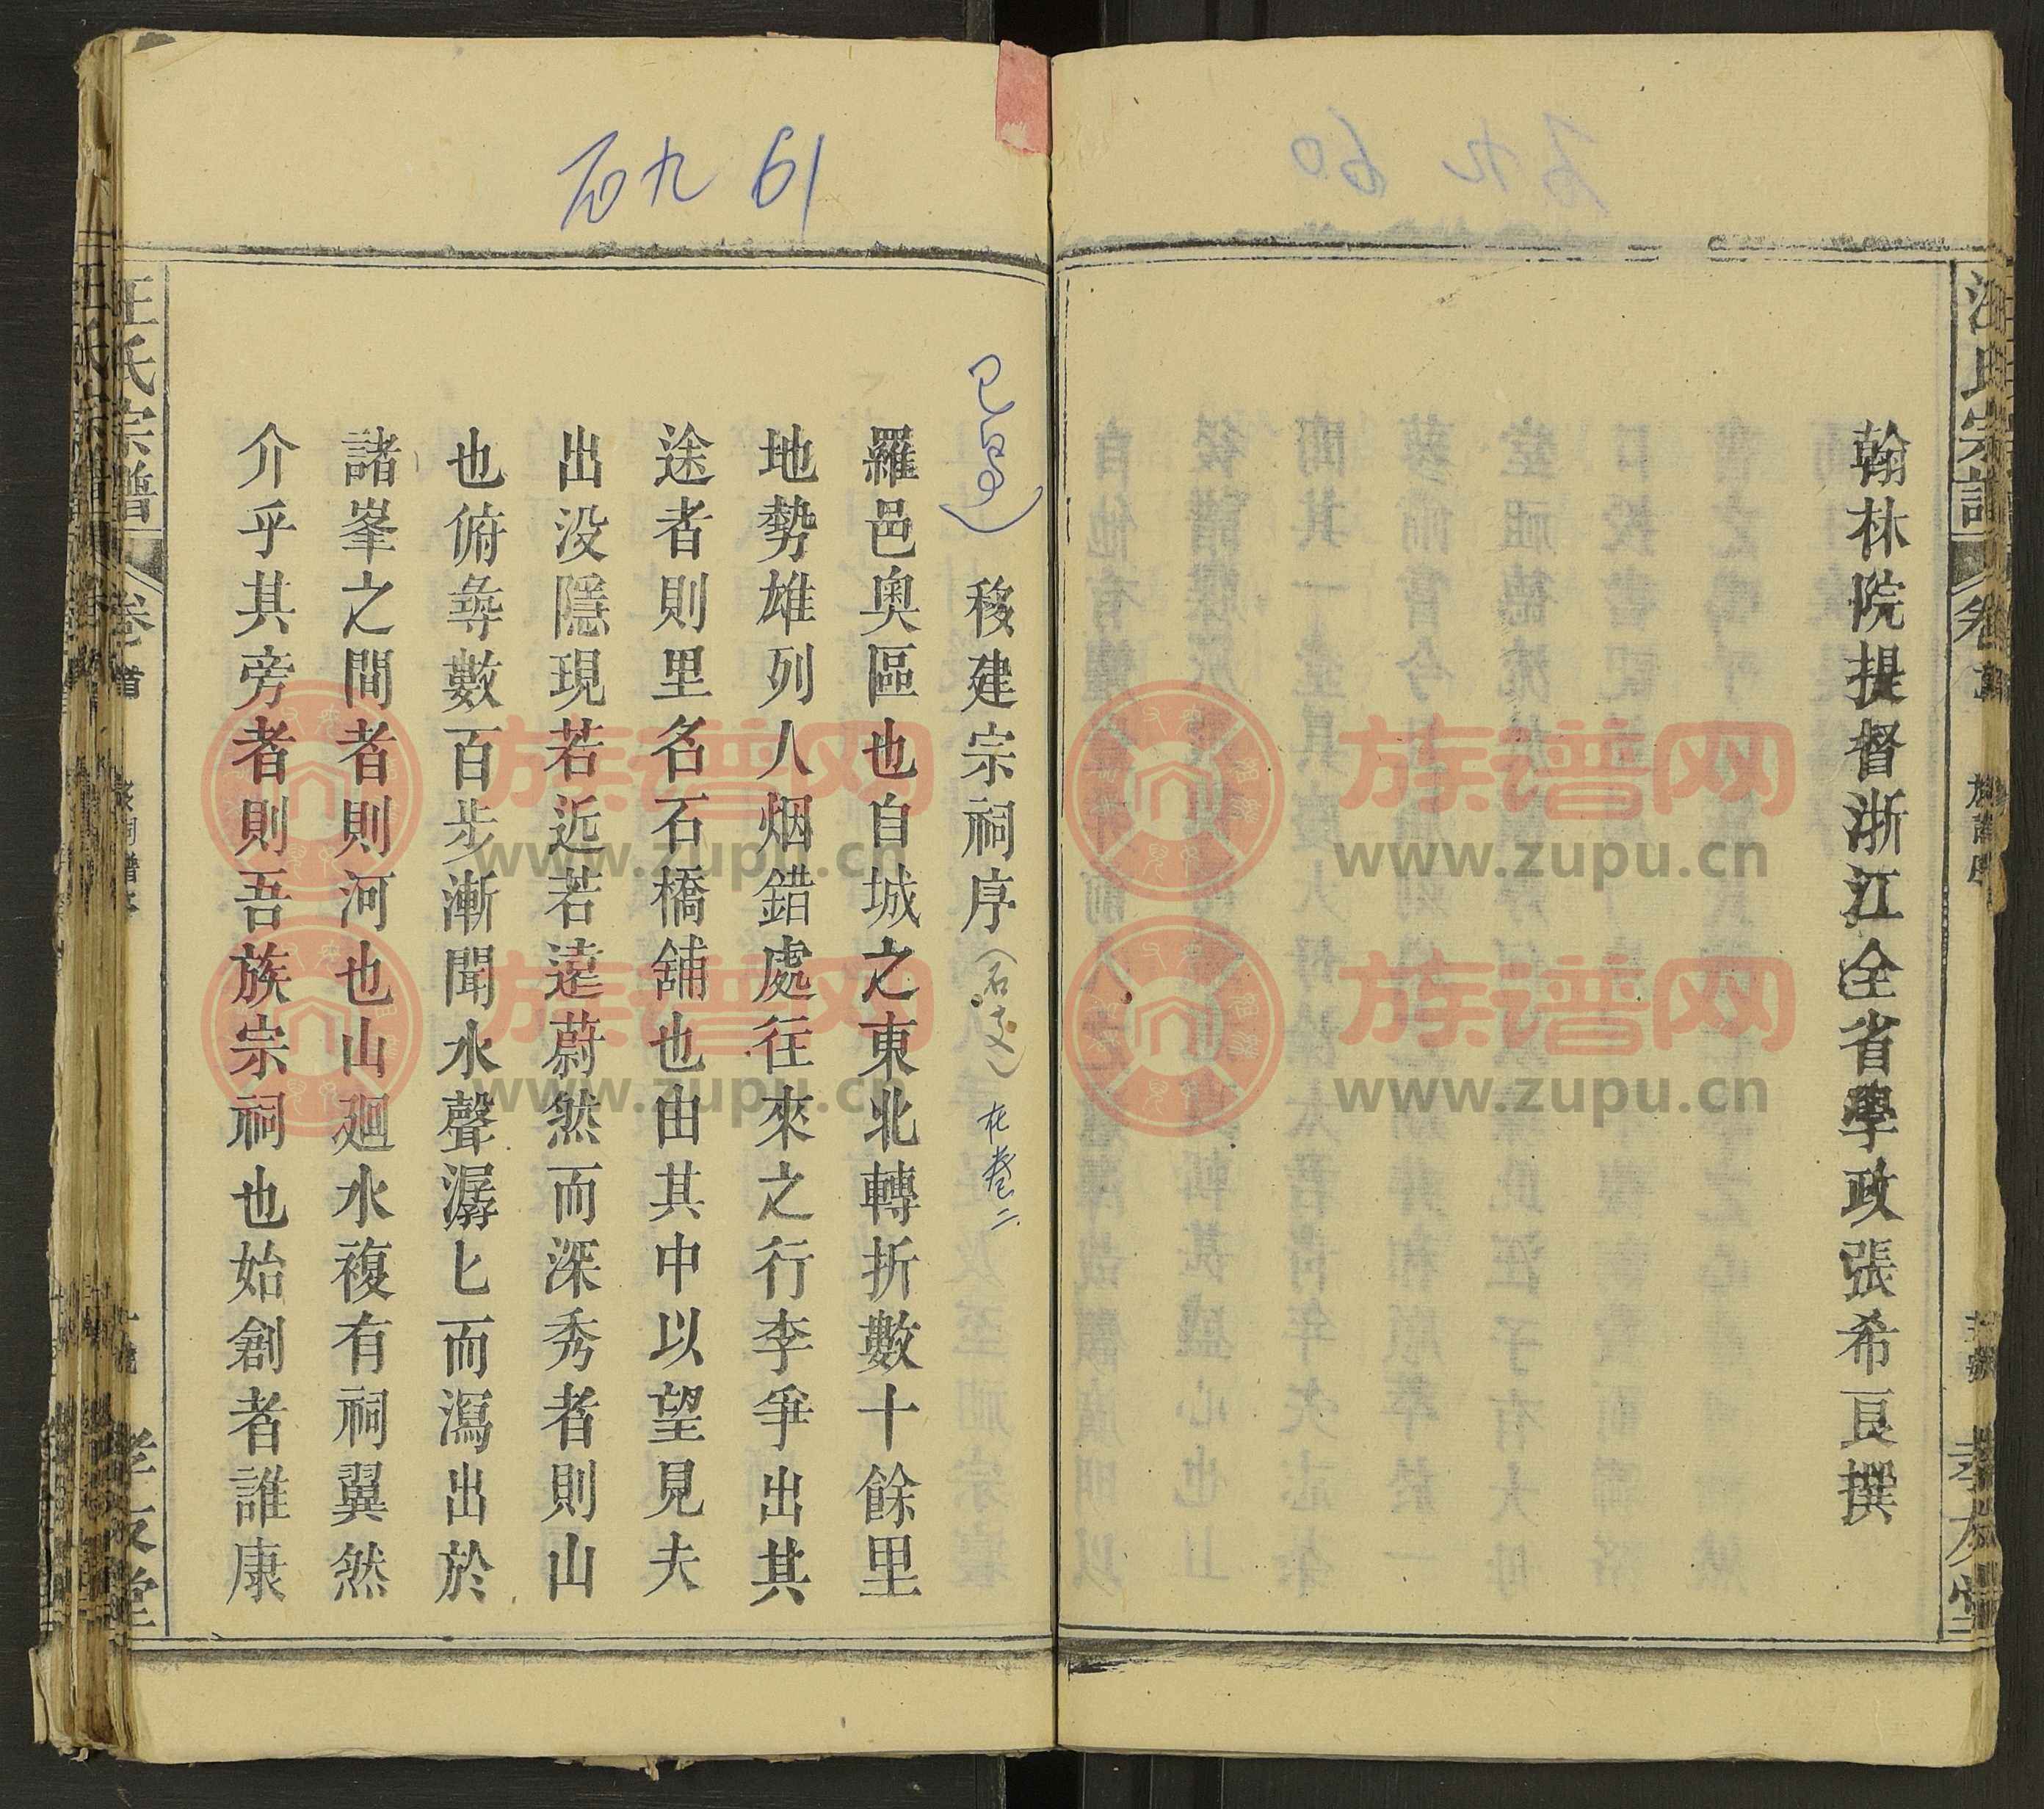 汪氏宗譜
孝友堂
翰林院提督浙江全省學政張希良撰
石九 61
移建宗祠序
在卷二
羅邑奧區也自城之東北轉折數十餘里
地勢雄列人烟錯處往來之行李爭出其
途者則里名石橋舖也由其中以望見夫
出没隱現若近若遠蔚然而深秀者則山
也俯彝數百步漸聞水聲潺匕而瀉出於
諸峯之間者則河也山廻水複有祠翼然
介乎其旁者則吾族宗祠也始創者誰康
汪氏宗譜
卷首
孝友堂
族谱网
www.zupu.cn
族谱网
www.zupu.cn
族谱网
www.zupu.cn
族谱网
www.zupu.cn